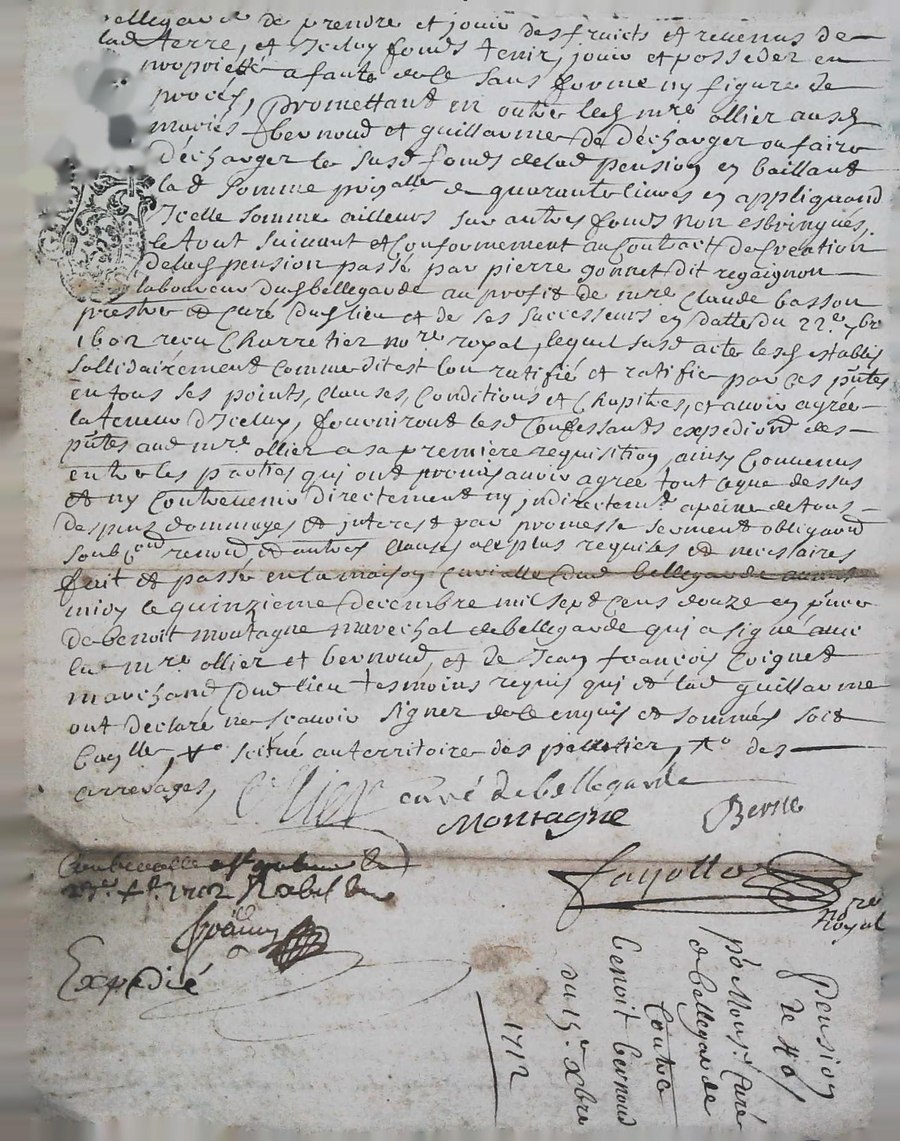 bellegarde de prendre et jouir des fruicts et revenus de
lad terre, et Jceluy fonds tenir, jouir et posseder en
propriette a faute de ce sans forme ny figure de
procés, promettant en outre lesd mre ollier ausd
mariés bernoud et guillaume de décharger ou faire
décharger le susd fonds de lad pension en baillant
lad somme prinalle de quarante livres en appliquand
Jcelle somme ailleurs sur autres fonds non esbrinqués,
le tout suivant et Conformement au Contract de Creation
de lad pension passé par pierre gonnet dit regaignon
laboureur dud bellegarde au profit de mre Claude basson
prestre et Curé dud lieu et de ses successeurs en datte du 22.e 7bre
1602 reçu Charretier nore royal, lequel susd acte lesd establis
sollidairement comme dit est l'on ratifié et ratifie par ces pntes
en tous ses points, clauses, Conditions et Chapitres, et avoir agrée
la teneur d'Jceluy, fourniront lesd Confessants expedions des
pntes aud mre ollier a sa premiere requisition, ainsy Convenus
entre les parties qui ont promis avoir agrée tout ce que dessus
et ny Contrevenir directement ny indirectemt a peine de tous
despens dommages et interest par promesse serment obligaond
soubmon renond, et autres clauses a ce plus requises et necessaires
fait et passé en la maison Curialle dud bellegarde
midy le quinzieme decembre mil sept cens douze en pnce
de benoit montagne marechal de bellegarde qui a signé avec
led mre ollier et bernoud, et de Jean françois Coignet
marchand dud lieu tesmoins requis qui et lad guillaume
ont declaré ne scavoir signer de ce enquis et sommés soit
scitué au territoire des pelletier, des
arrérages,
Ollier curé de bellegarde
Montagne
Fayolle
nore
Royal
1712
Expedié
Pension
de
po Monsr. Curé
de bellegarde
Contre
benoit bernoud
du 15e Xbre
1712